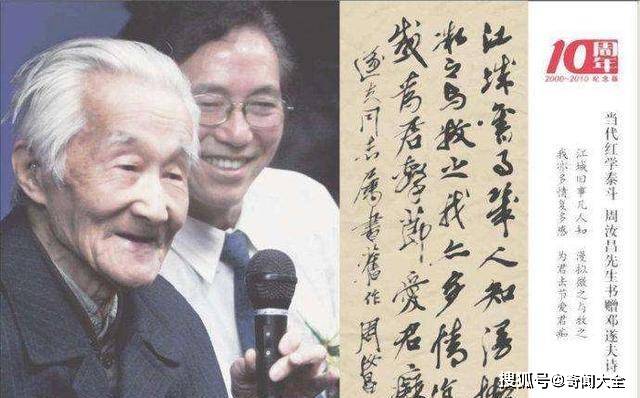 10周年
2000-2010 纪念版
当代红学泰斗 周汝昌先生书赠邓遂夫诗
江城旧事几人知 漫拟微之与牧之
我亦多情复多感 为君击节爱君痴
江城舊事幾人知漫擬
微之与牧之我亦多情復
感為君擊節愛君癡
遂夫同志属書舊作 周汝昌
搜狐号@奇闻大全